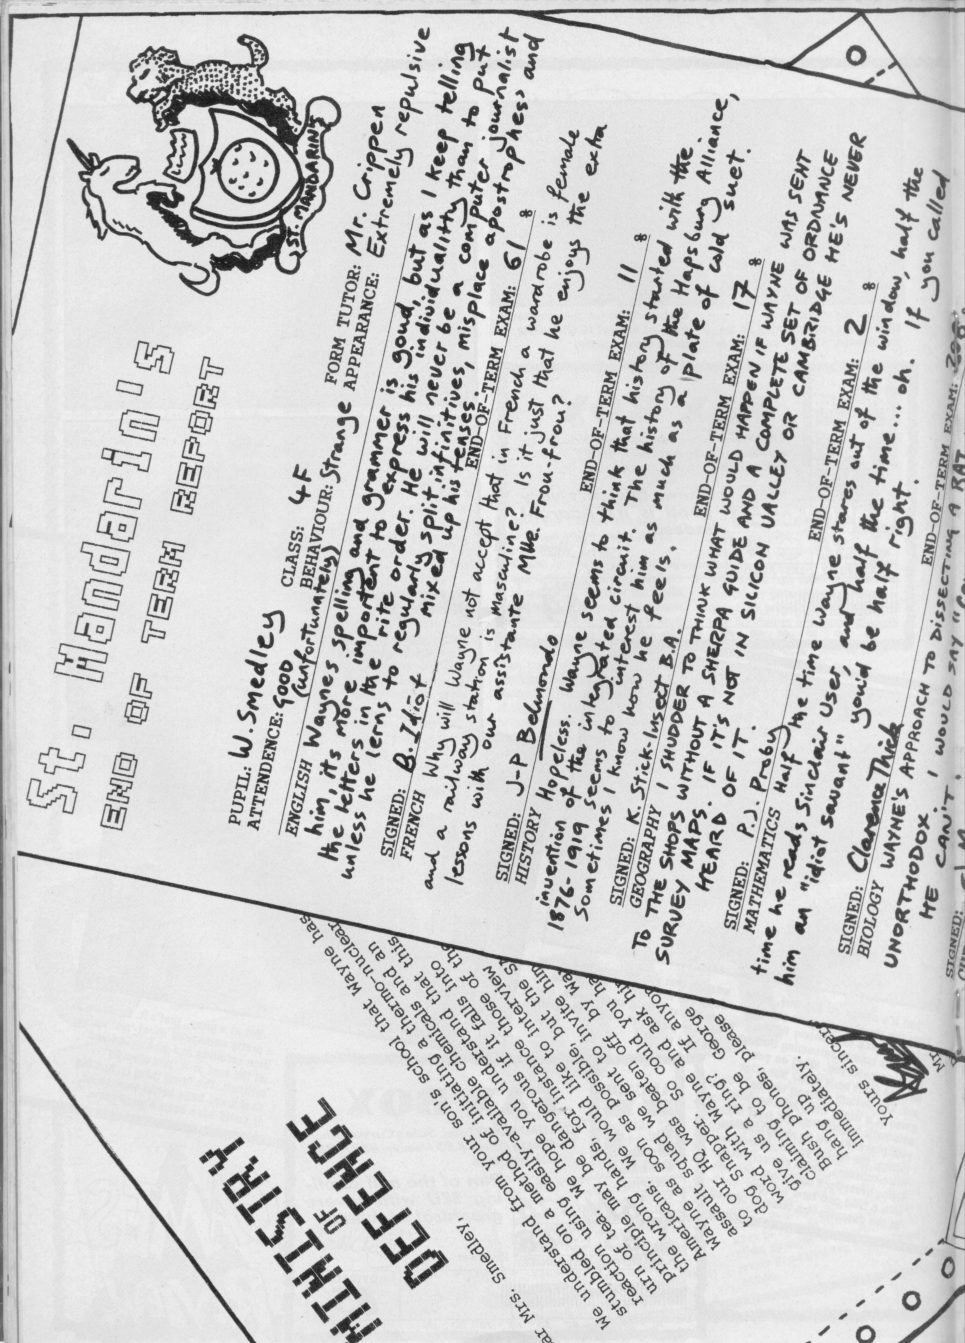 St. Mandarin's
END OF TERM REPORT
ST. MANDARINS
PUPIL: W. Smedley CLASS: 4F FORM TUTOR: Mr. Crippen
ATTENDENCE: GOOD (unfortunately) BEHAVIOUR: Strange APPEARANCE: Extremely repulsive
ENGLISH Waynes spelling and grammer is goud, but as I keep telling
him, its more important to express his individuality than to put
the letters in the rite order. He will never be a computer journalist
unless he lerns to regularly split infinitives, misplace apostrophes> and
mixed up his tenses.
SIGNED: B. Idiot END-OF-TERM EXAM: 61 %
FRENCH Why will Wayne not accept that in French a wardrobe is female
and a railway station is masculine? Is it just that he enjoys the extra
lessons with our assistante Mlle. Frou-frou?
SIGNED: J-P Belmondo END-OF-TERM EXAM: 11 %
HISTORY Hopeless. Wayne seems to think that history started with the
invention of the integrated circuit. The history of the Hapsburg Alliance,
1876-1919 seems to interest him as much as a plate of cold suet.
Sometimes I know how he feels.
SIGNED: K. Stick-Insect B.A. END-OF-TERM EXAM: 17 %
GEOGRAPHY I SHUDDER TO THINK WHAT WOULD HAPPEN IF WAYNE WAS SENT
TO THE SHOPS WITHOUT A SHERPA GUIDE AND A COMPLETE SET OF ORDNANCE
SURVEY MAPS. IF IT'S NOT IN SILICON VALLEY OR CAMBRIDGE HE'S NEVER
HEARD OF IT.
SIGNED: P.J. Proby END-OF-TERM EXAM: 2 %
MATHEMATICS Half the time Wayne stares out of the window, half the
time he reads Sinclair User, and half the time... oh. If you called
him an "idiot savant" you'd be half right.
SIGNED: Clarence Thick END-OF-TERM EXAM:
BIOLOGY WAYNE'S APPROACH TO DISSECTING A RAT
UNORTHODOX. I WOULD SAY
HE CAN'T.
SIGNED:
MINISTRY
OF
DEFENCE
Mrs. Smedley,
We understand from your son's school that Wayne has
stumbled on a method of initiating a thermo-nuclear
reaction using easily-available chemicals and an
urn of tea. We hope you understand that this
principle may be dangerous if it falls into
the wrong hands, for instance those of the
Americans. We would like to interview
Wayne as soon as possible, but the
assault squad we sent to invite him
to our HQ was beaten off by
dog Snapper. So could you
word with Wayne and ask
give us a ring? If
claiming to be George
Bush phones, please
hang up
immediately.
Yours